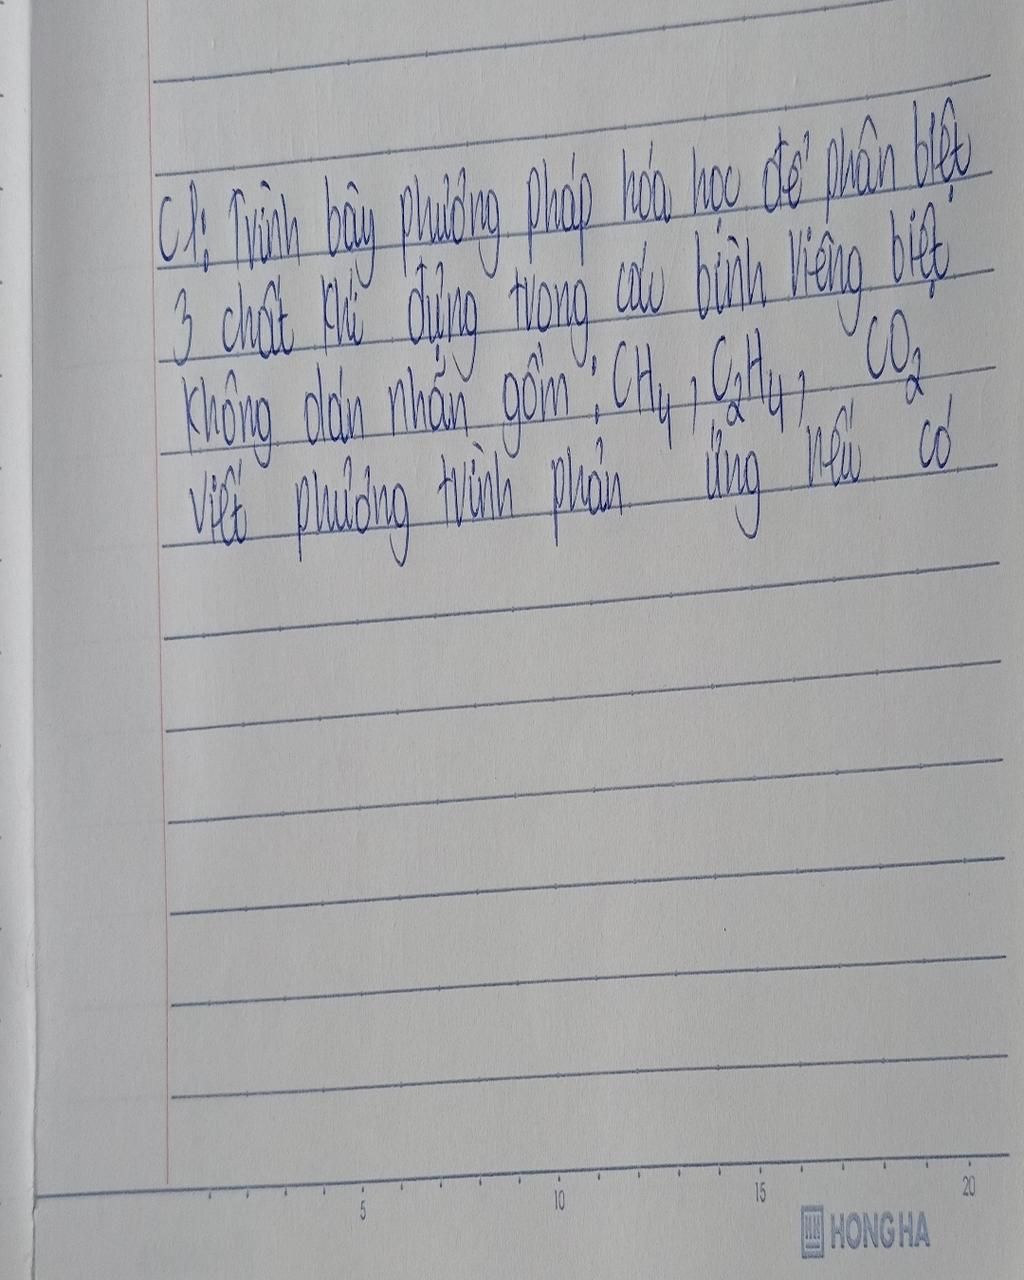 C1: Trình bày phương pháp hóa học để phân biệt
3 chất khí đựng trong các bình riêng biệt
không dán nhãn gồm: CH₄, C₂H₄, CO₂
viết phương trình phản ứng nếu có
5 10 15 20
HONG HA